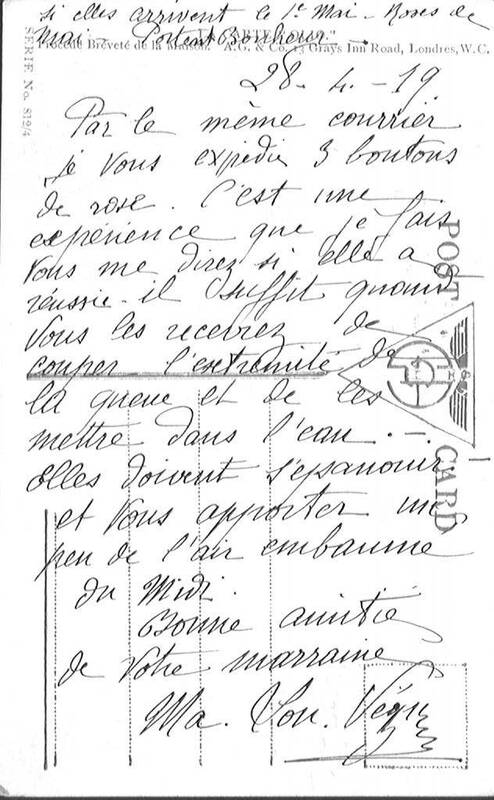 si elles arrivent le 1er Mai - Roses de
Mai - Portent Bonheur -
Procédé Breveté de la Maison. A.G. & Co. 13 Grays Inn Road, Londres, W.C.
SERIE. No. 812/4
28. 4 - 19.
Par le même courrier
je vous expédie 3 boutons
de rose. C'est une
expérience que je fais
Vous me direz si elle a
réussie - il suffit quand
Vous les recevrez de
couper l'extrémité de
la queue et de les
mettre dans l'eau . -
Elles doivent s'épanouir
et vous apporter un
peu de l'air embaumé
du Midi.
Bonne amitié
de votre marraine
Ma. Lou.
POST CARD